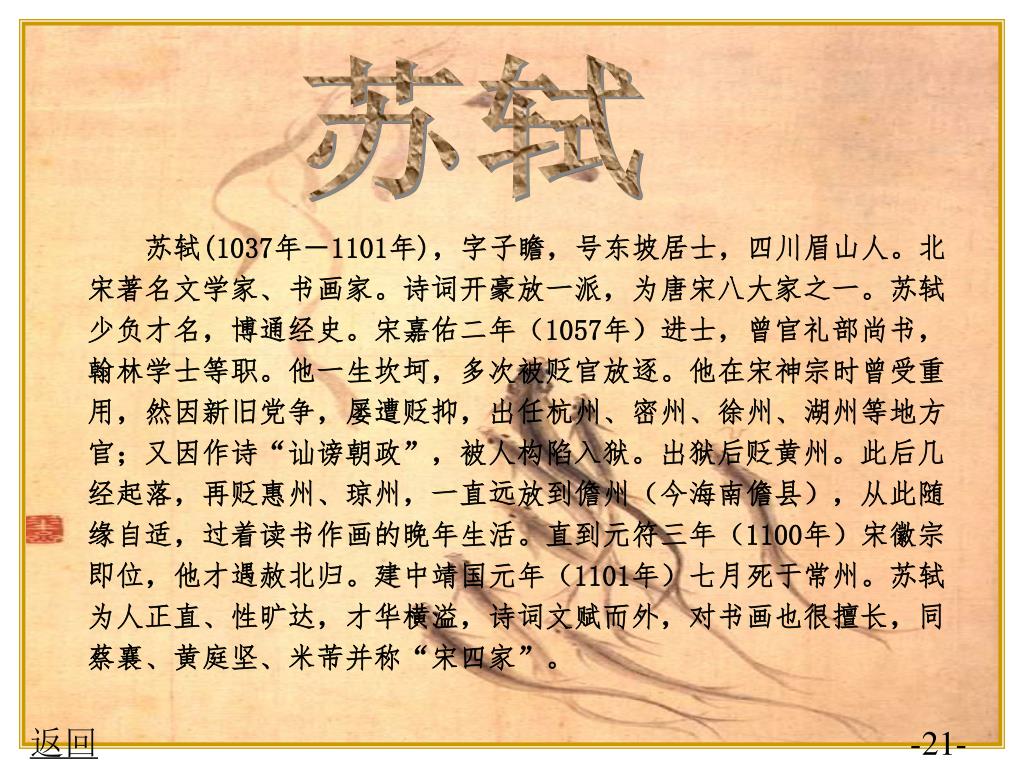 苏轼
苏轼(1037年－1101年)，字子瞻，号东坡居士，四川眉山人。北
宋著名文学家、书画家。诗词开豪放一派，为唐宋八大家之一。苏轼
少负才名，博通经史。宋嘉佑二年（1057年）进士，曾官礼部尚书，
翰林学士等职。他一生坎坷，多次被贬官放逐。他在宋神宗时曾受重
用，然因新旧党争，屡遭贬抑，出任杭州、密州、徐州、湖州等地方
官；又因作诗“讪谤朝政”，被人构陷入狱。出狱后贬黄州。此后几
经起落，再贬惠州、琼州，一直远放到儋州（今海南儋县），从此随
缘自适，过着读书作画的晚年生活。直到元符三年（1100年）宋徽宗
即位，他才遇赦北归。建中靖国元年（1101年）七月死于常州。苏轼
为人正直、性旷达，才华横溢，诗词文赋而外，对书画也很擅长，同
蔡襄、黄庭坚、米芾并称“宋四家”。
返回
-21-